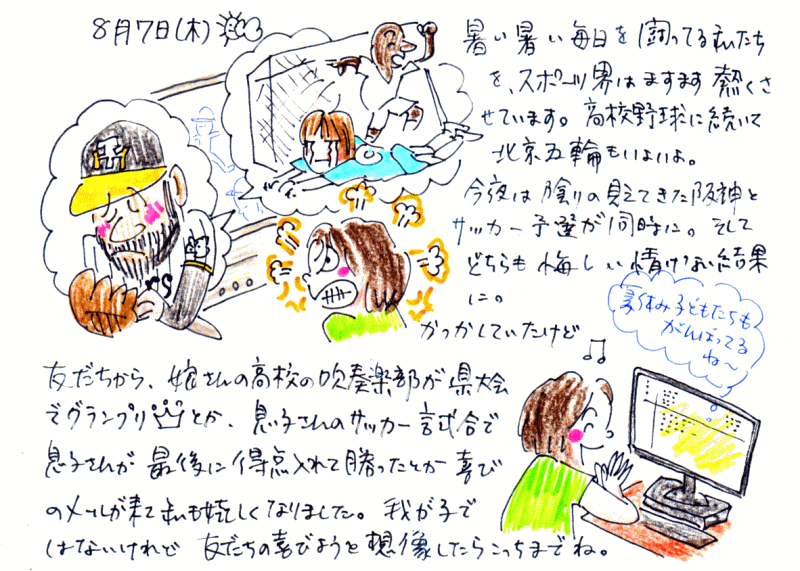 8月7日(木)
暑い暑い毎日を闘ってる私たち
を、スポーツ界はますます熱くさ
せています。高校野球に続いて
北京五輪もいよいよ。
今夜は陰りの見えてきた阪神と
サッカー予選が同時に。そして
どちらも悔しい情けない結果
に。
かっかしていたけど
友だちから、娘さんの高校の吹奏楽部が県大会
でグランプリとか、息子さんのサッカー試合で
息子さんが最後に得点入れて勝ったとか喜び
のメールが来て私も嬉しくなりました。我が子で
はないけれど友だちの喜びようを想像したらこっちまでね。
夏休み子どもたちも
がんばってる
ね～